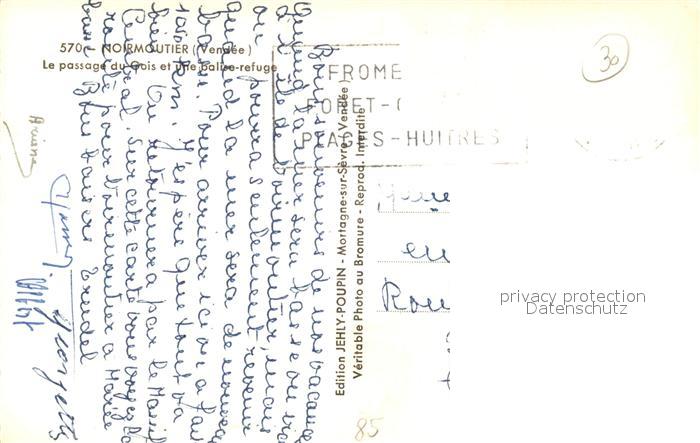 570 - NOIRMOUTIER (Vendée)
Le passage du Gois et une balise-refuge
FROME
FORET-
PLAGES-HUITRES
30
Bons souvenirs de nos vacances
quand la mer sera basse on ira
à l'île de Noirmoutier, mais
on pourra seulement revenir
quand la mer sera de nouveau
basse. Pour arriver ici on a fait
1050 km. J'espère que tout va
bien. On retournera par le Massif
Central. Sur cette carte vous voyez la
route pour Noirmoutier à Marée
basse. Bons baisers
Georgette
Edition JEHLY-POUPIN - Mortagne-sur-Sèvre - Vendée
Véritable Photo au Bromure - Reprod. Interdite
privacy protection
Datenschutz
85